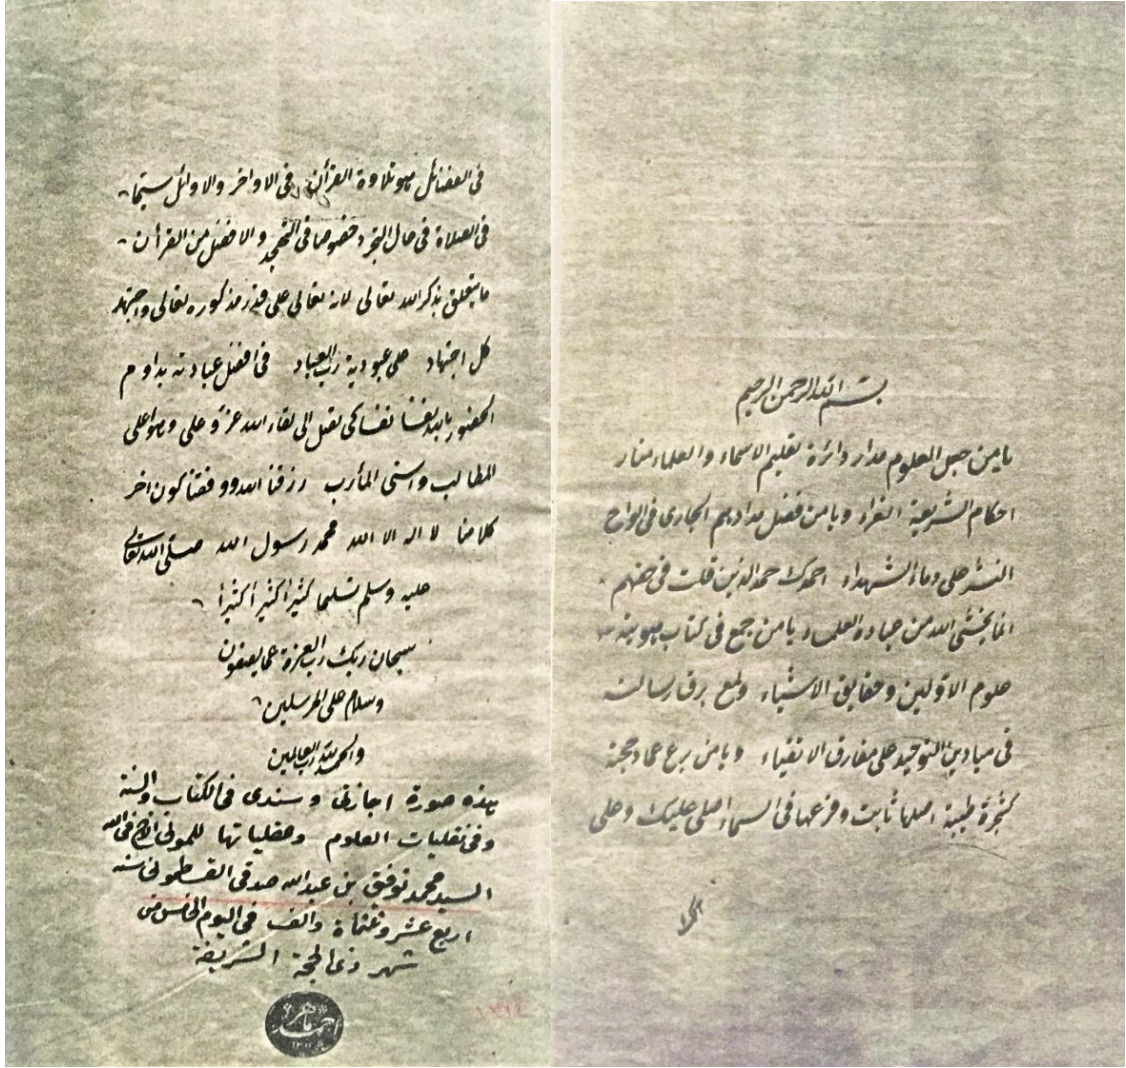 بسم الله الرحمن الرحيم
يا من جعل العلوم مدار دائرة تعليم الاسماء والعلماء منار
احكام الشريعة الغراء ويا من فضل مدادهم الجارى فى الواح
النشر على دماء الشهداء احمدك حمد الذين قلت فى حقهم
انما يخشى الله من عباده العلماء يا من جمع فى كتاب
علوم الاولين وحقايق الاشياء ولمع برق رسالته
فى ميادين التوحيد على مفارق الاتقياء ويا من عماد حجته
كشجرة طيبة اصلها ثابت وفرعها فى السماء اصلى عليك وعلى
فى الفضائل هو تلاوة القرأن فى الاواخر والاوائل سيما
فى الصلاة فى حال التجرد خصوصا فى التهجد والافضل من القرأن
ما يتعلق بذكر الله تعالى لانه تعالى على قدر مذكوره تعالى واجتهد
كل اجتهاد على عبودية رب العباد فى افضل عبادته بداوم
الحضور بالله نفسا نفسا كى تصل الى لقاء الله عز وعلى وهو اعلى
المطالب واسنى المأرب رزقنا الله ووفقنا كون اخر
كلامنا لا اله الا الله محمد رسول الله صلى الله تعالى
عليه وسلم تسليما كثيرا كثيرا كثيرا
سبحان ربك رب العزة عما يصفون
وسلام على المرسلين
والحمد لله رب العالمين
هذه صورة اجازتى وسندى فى الكتاب والسنة
وفى نقليات العلوم وعقلياتها للمولى الاخ فى الله
السيد محمد توفيق بن عبد الله صدقى القسطمونى سنه
اربع عشر وثلثمائة والف فى اليوم الخامس من
شهر ذى الحجة الشريفة
احمد ماهر
١٣١٤